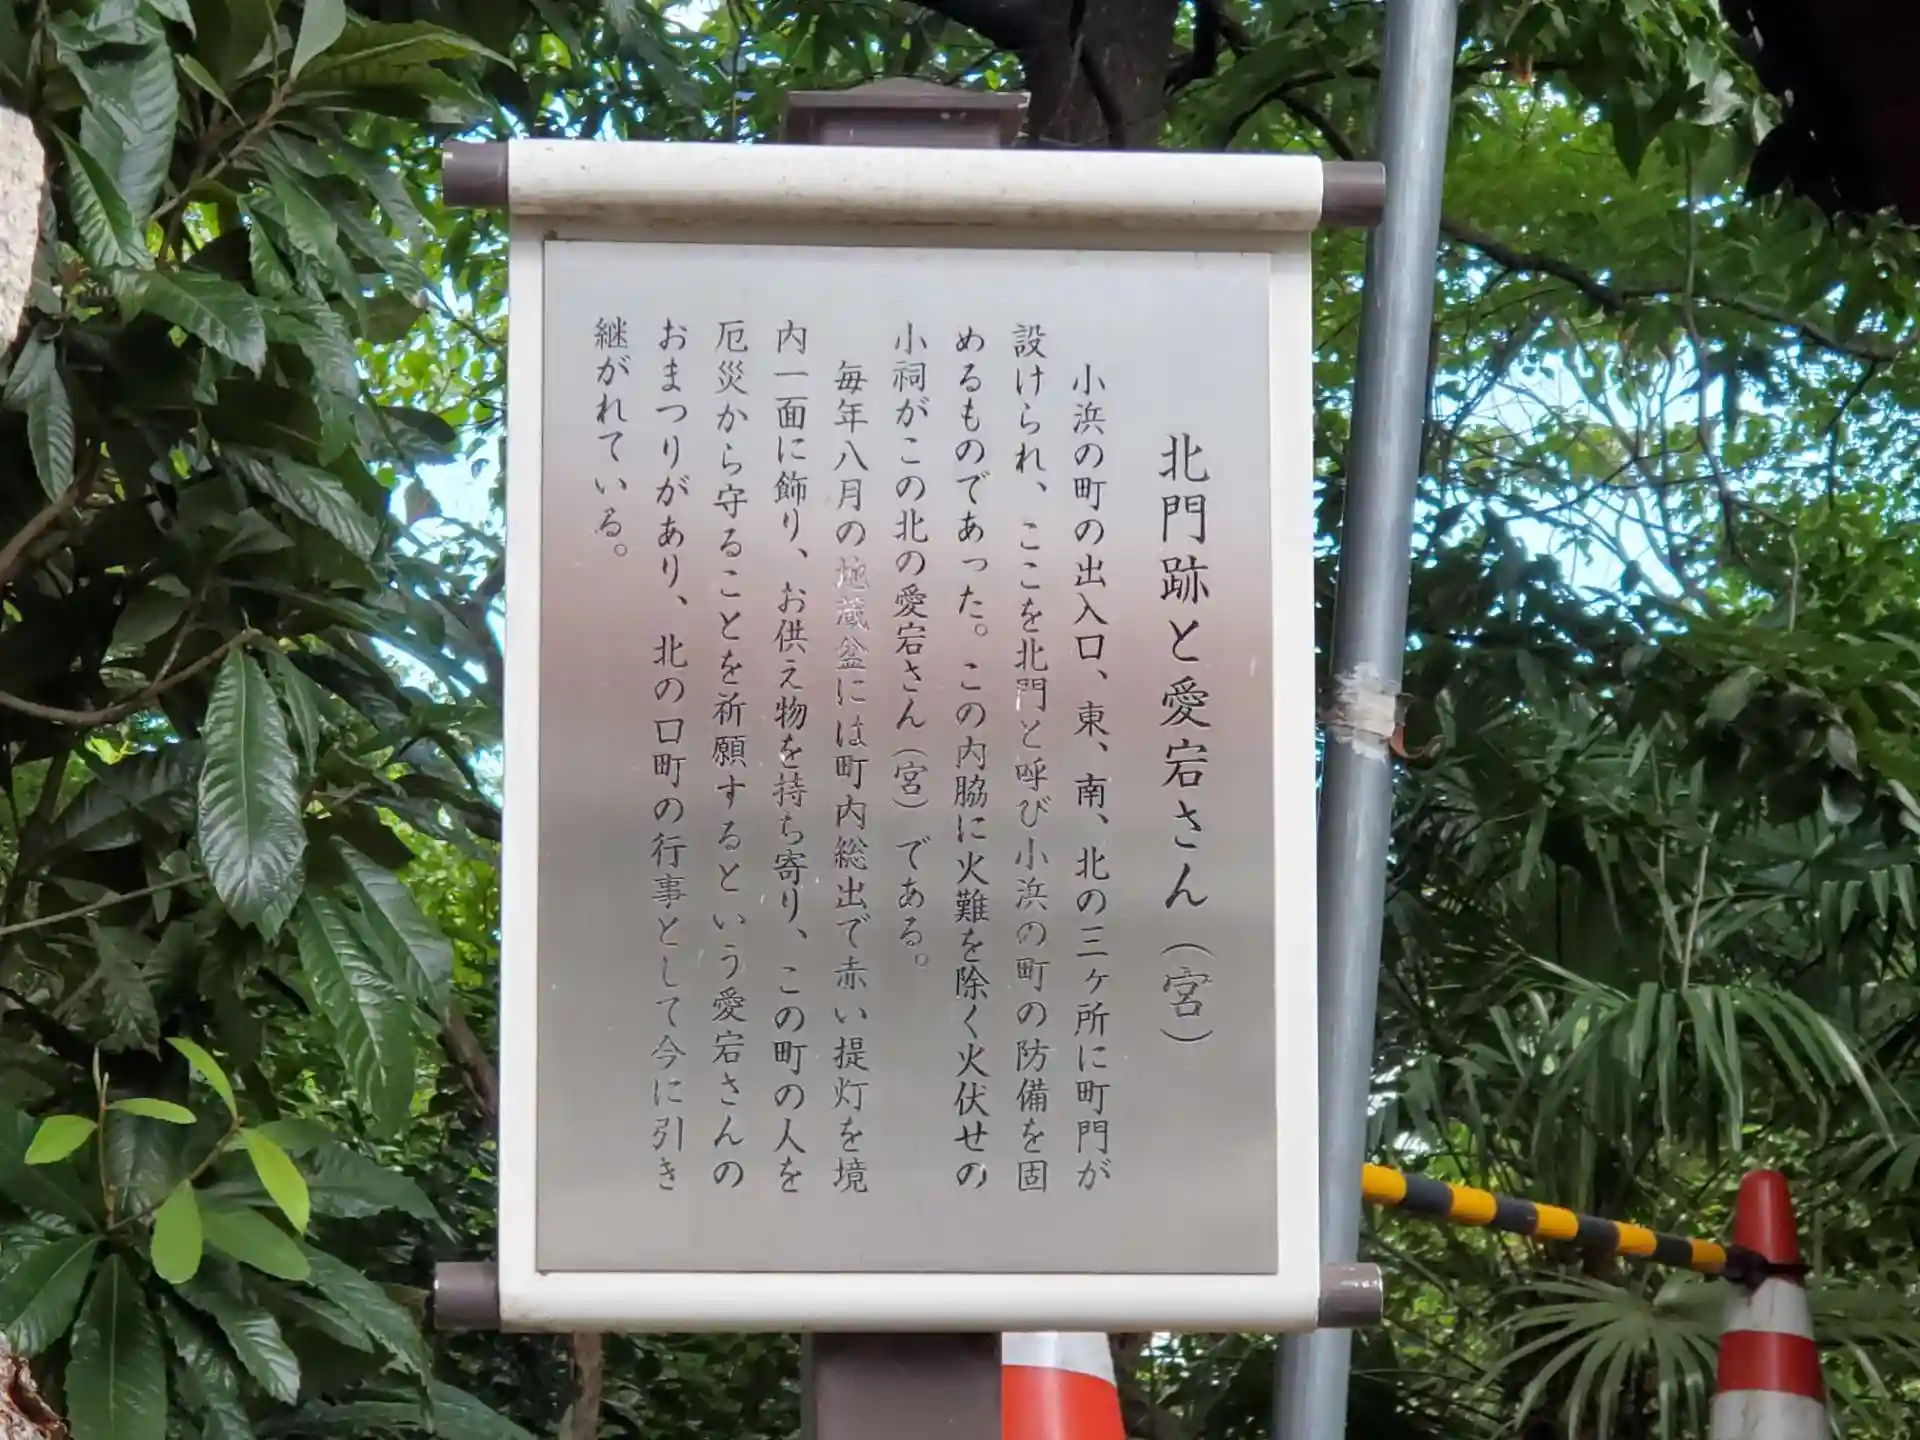 北門跡と愛宕さん（宮）
小浜の町の出入口、東、南、北の三ヶ所に町門が
設けられ、ここを北門と呼び小浜の町の防備を固
めるものであった。この内脇に火難を除く火伏せの
小祠がこの北の愛宕さん（宮）である。
毎年八月の地蔵盆には町内総出で赤い提灯を境
内一面に飾り、お供え物を持ち寄り、この町の人を
厄災から守ることを祈願するという愛宕さんの
おまつりがあり、北の口町の行事として今に引き
継がれている。